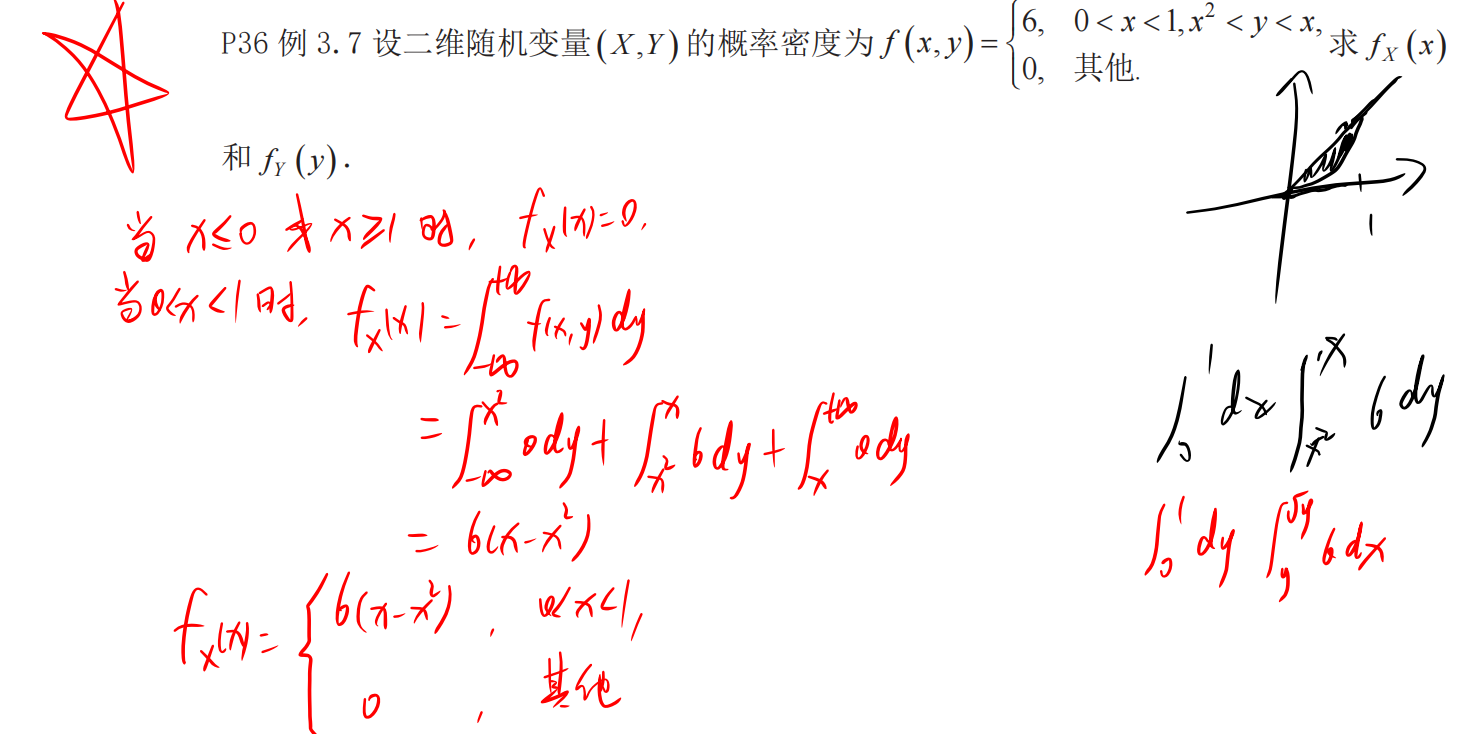 P36 例 3.7 设二维随机变量(X,Y)的概率密度为 f(x,y)={6, 0<x<1,x²<y<x, 0, 其他. 求 f_X(x)
和 f_Y(y).
当 x≤0 或 x≥1 时, f_X(x)=0.
当0<x<1时, f_X(x)=∫_{-∞}^{+∞} f(x,y)dy
=∫_{-∞}^{x²} 0dy+∫_{x²}^{x} 6dy+∫_{x}^{+∞} 0dy
= 6(x-x²)
f_X(x)={6(x-x²), 0<x<1,
0, 其他
1
∫_0^1 dx ∫_{x²}^{x} 6dy
∫_0^1 dy ∫_y^{√y} 6dx